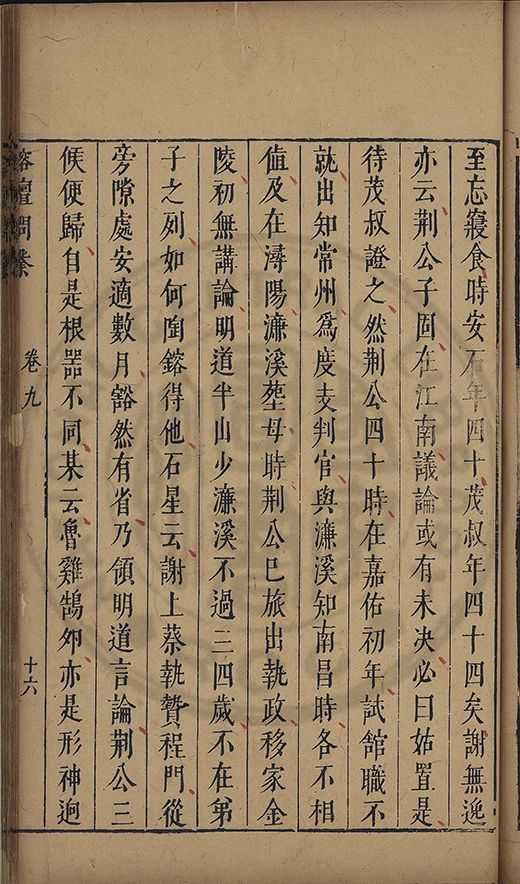 至忘寢食時安石年四十茂叔年四十四矣謝無逸
亦云荆公子固在江南議論或有未决必曰姑置是
待茂叔證之然荆公四十時在嘉佑初年試館職不
就出知常州為度支判官與濂溪知南昌時各不相
值及在潯陽濂溪塟母時荆公巳旅出執政移家金
陵初無講論明道半山少濂溪不過三四歲不在第
子之列如何陶鎔得他石星云謝上蔡執贄程門從
旁隙處安適數月豁然有省乃領明道言論荆公三
候便歸自是根噐不同某云魯雞鵠夘亦是形神逈
榕壇問業
卷九
十六